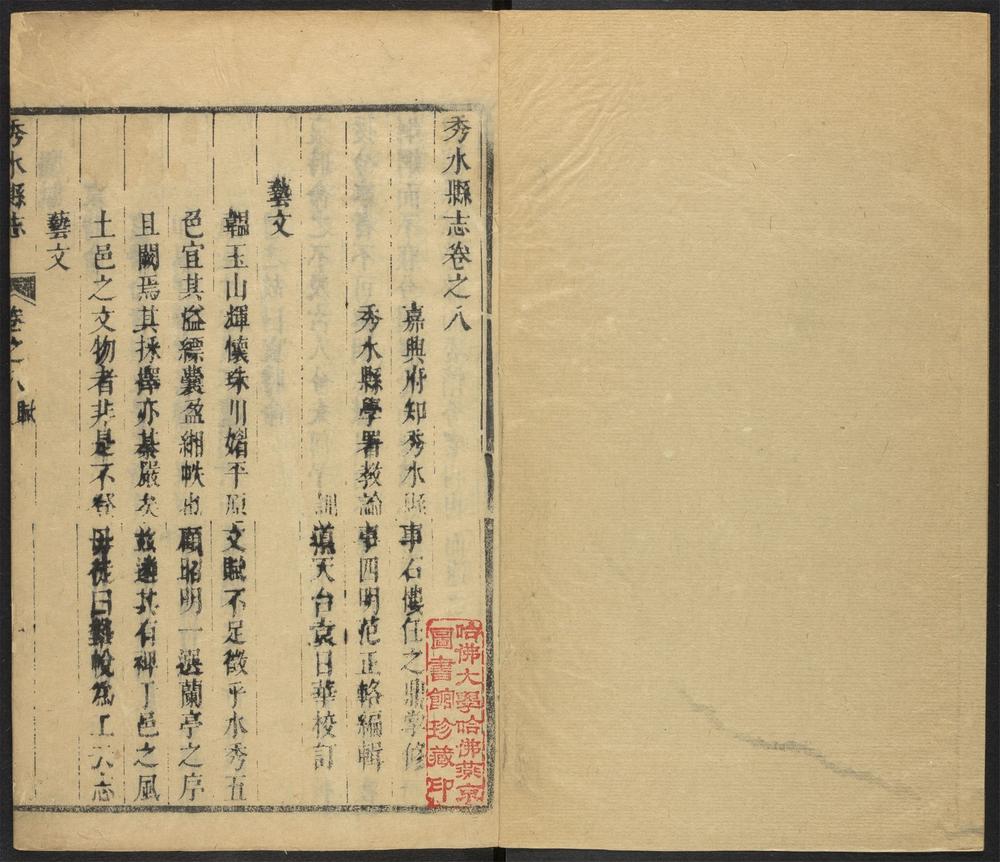 秀水縣志卷之八
嘉興府知秀水縣事石樓任之鼎學修
秀水縣學署教諭事四明范正輅編輯
訓導天台袁日華校訂
藝文
韞玉山輝懷珠川媚平原文賦不足徵乎水秀五
色宜其溢縹囊盈緗帙也顧昭明一選蘭亭之序
且闕焉其採擇亦綦嚴矣茲遴其有裨于邑之風
土邑之文物者非是不登毋徒曰鞶帨為工云志
藝文
秀水縣志
卷之八 賦
哈佛大學哈佛燕京
圖書館珍藏印